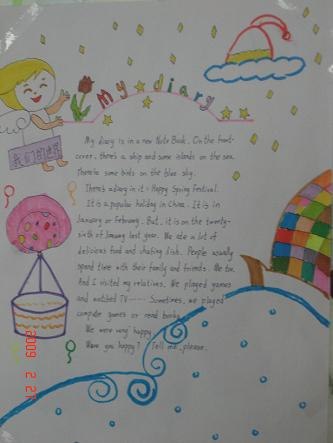 My diary
我们的世界
My diary is in a new Note Book. On the front-
cover, there's a ship and some islands on the sea.
There're some birds on the blue sky.
There's a diary in it: Happy Spring Festival.
It is a popular holiday in China. It is in
January or February. But, it is on the twenty-
sixth of January last year. We ate a lot of
delicious food and chafing dish. People usually
spend time with their family and friends. We too.
And I visited my relatives. We played games
and watched TV ····· Sometimes, we played
computer games or read books.
We were very happy.
Were you happy? Tell me, please.
2009 2 27